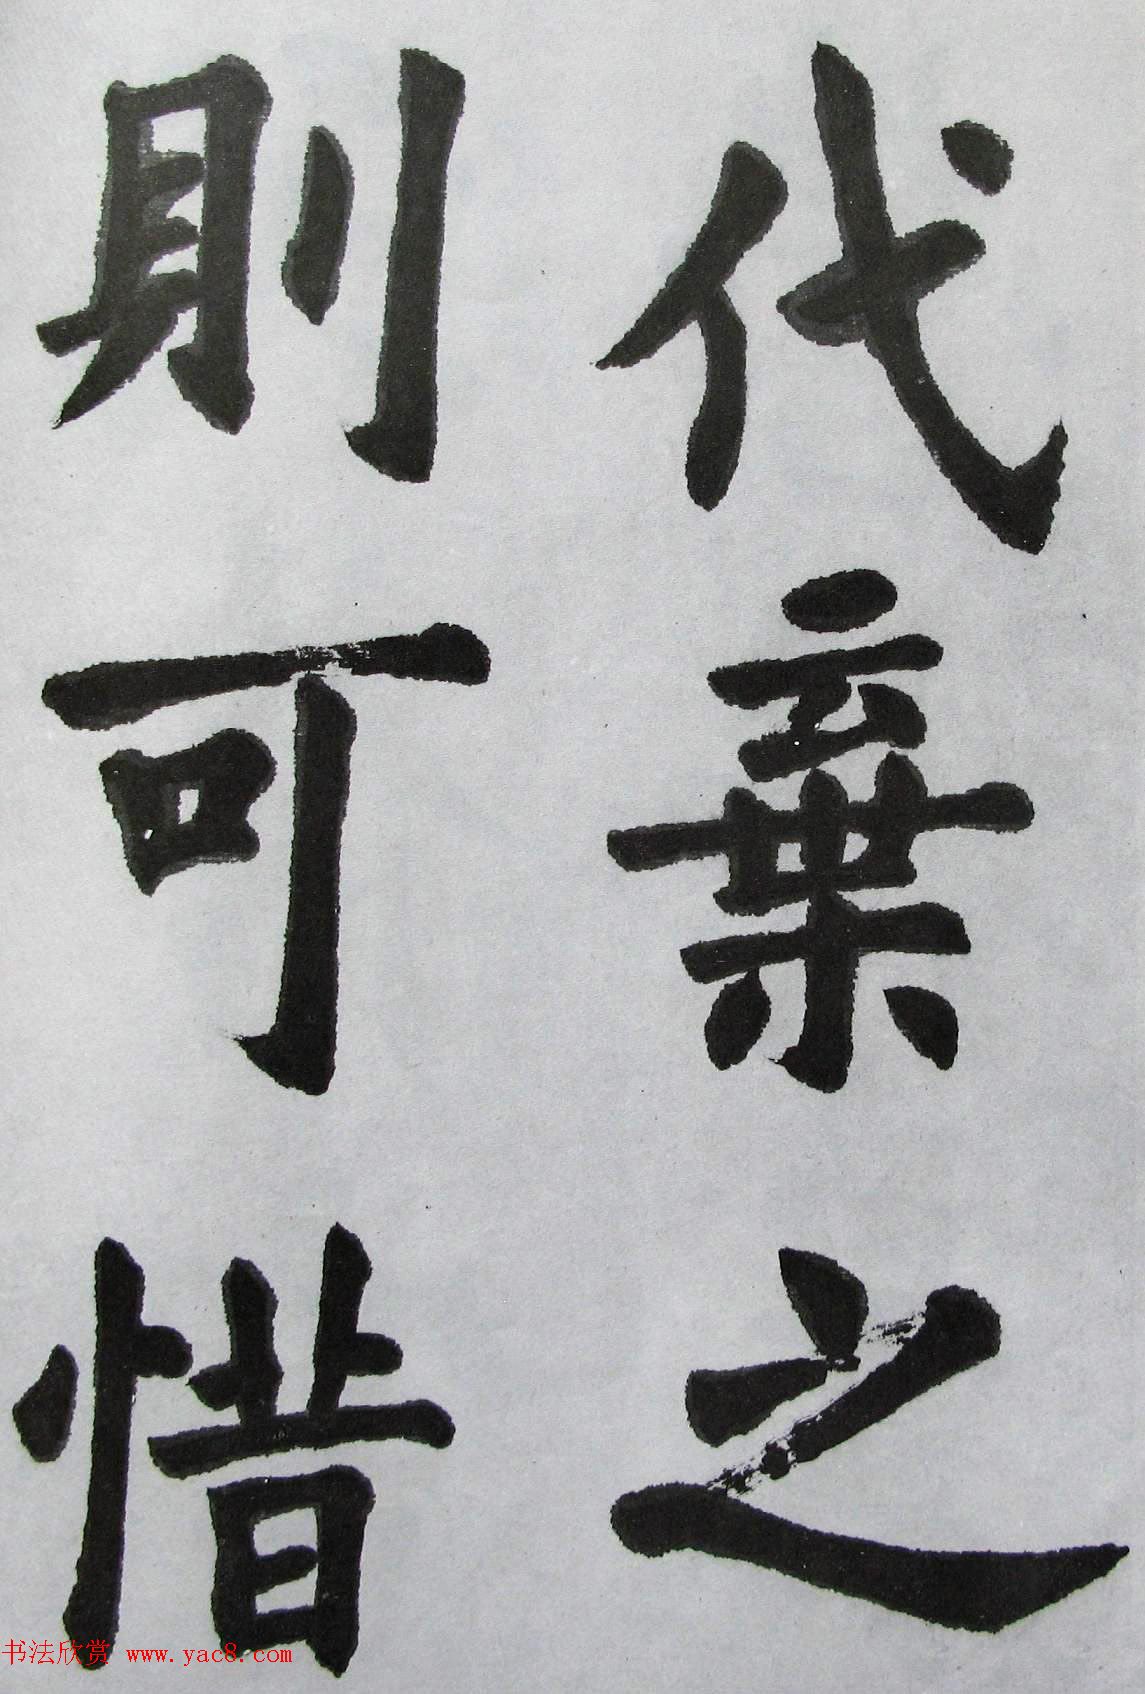 代棄之
則可惜
书法欣赏 www.yac8.com